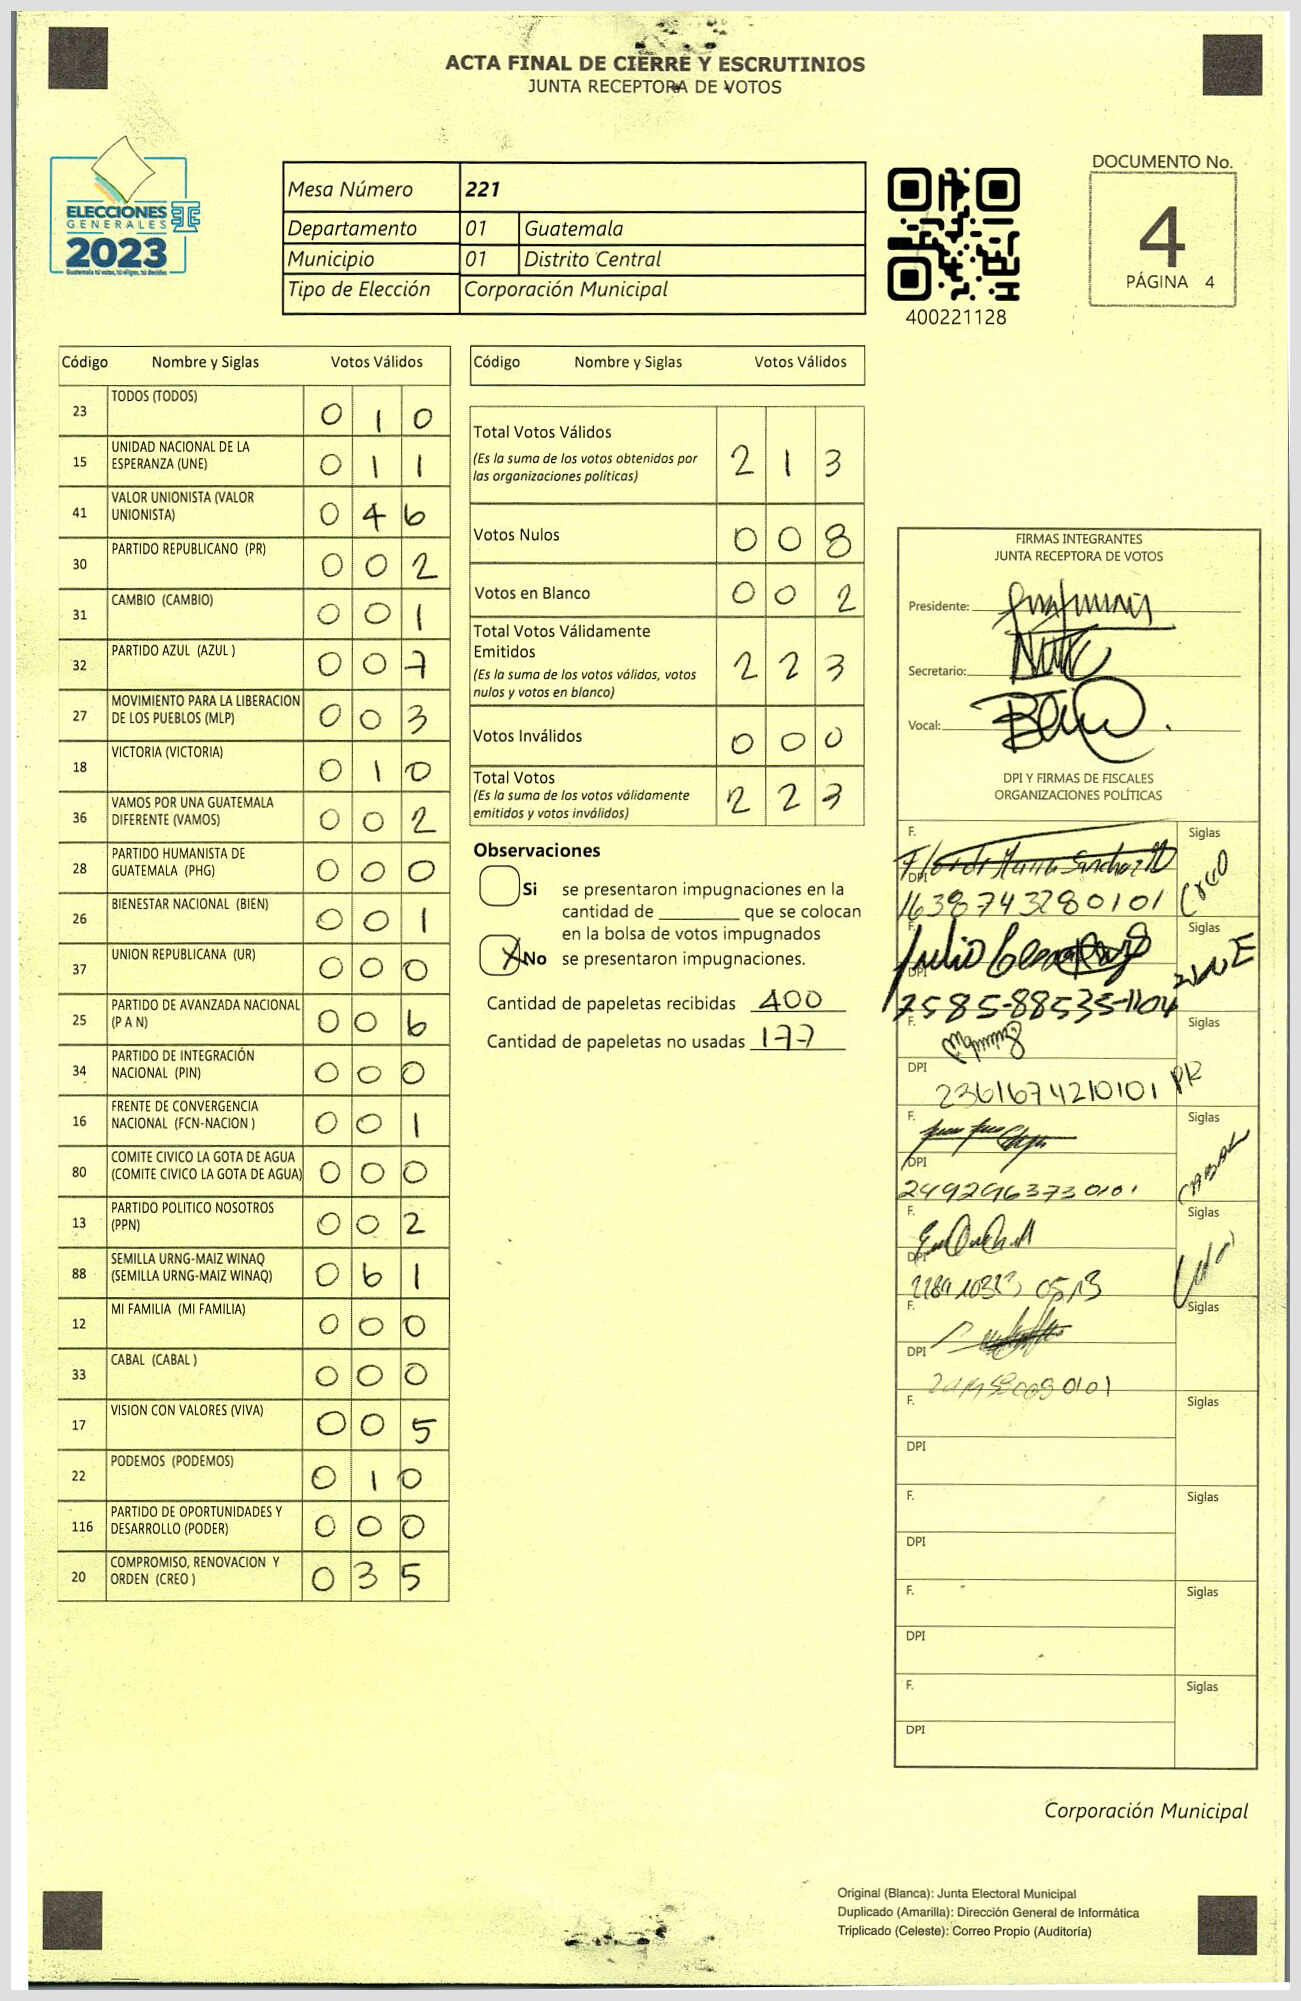 ACTA FINAL DE CIERRE Y ESCRUTINIOS
JUNTA RECEPTORA DE VOTOS
ELECCIONES
GENERALES
2023
Guatemala tú votas, tú eliges, tú decides
Mesa Número 221
Departamento 01 Guatemala
Municipio 01 Distrito Central
Tipo de Elección Corporación Municipal
400221128
DOCUMENTO No.
4
PÁGINA 4
Código Nombre y Siglas Votos Válidos
23 TODOS (TODOS) 0 1 0
15 UNIDAD NACIONAL DE LA
ESPERANZA (UNE) 0 1 1
41 VALOR UNIONISTA (VALOR
UNIONISTA) 0 4 6
30 PARTIDO REPUBLICANO (PR) 0 0 2
31 CAMBIO (CAMBIO) 0 0 1
32 PARTIDO AZUL (AZUL ) 0 0 7
27 MOVIMIENTO PARA LA LIBERACION
DE LOS PUEBLOS (MLP) 0 0 3
18 VICTORIA (VICTORIA) 0 1 0
36 VAMOS POR UNA GUATEMALA
DIFERENTE (VAMOS) 0 0 2
28 PARTIDO HUMANISTA DE
GUATEMALA (PHG) 0 0 0
26 BIENESTAR NACIONAL (BIEN) 0 0 1
37 UNION REPUBLICANA (UR) 0 0 0
25 PARTIDO DE AVANZADA NACIONAL
(P A N) 0 0 6
34 PARTIDO DE INTEGRACIÓN
NACIONAL (PIN) 0 0 0
16 FRENTE DE CONVERGENCIA
NACIONAL (FCN-NACION ) 0 0 1
80 COMITE CIVICO LA GOTA DE AGUA
(COMITE CIVICO LA GOTA DE AGUA) 0 0 0
13 PARTIDO POLITICO NOSOTROS
(PPN) 0 0 2
88 SEMILLA URNG-MAIZ WINAQ
(SEMILLA URNG-MAIZ WINAQ) 0 6 1
12 MI FAMILIA (MI FAMILIA) 0 0 0
33 CABAL (CABAL ) 0 0 0
17 VISION CON VALORES (VIVA) 0 0 5
22 PODEMOS (PODEMOS) 0 1 0
116 PARTIDO DE OPORTUNIDADES Y
DESARROLLO (PODER) 0 0 0
20 COMPROMISO, RENOVACION Y
ORDEN (CREO ) 0 3 5
Código Nombre y Siglas Votos Válidos
Total Votos Válidos 2 1 3
(Es la suma de los votos obtenidos por
las organizaciones políticas)
Votos Nulos 0 0 8
Votos en Blanco 0 0 2
Total Votos Válidamente
Emitidos 2 2 3
(Es la suma de los votos válidos, votos
nulos y votos en blanco)
Votos Inválidos 0 0 0
Total Votos 2 2 3
(Es la suma de los votos válidamente
emitidos y votos inválidos)
Observaciones
Si se presentaron impugnaciones en la
cantidad de ________ que se colocan
en la bolsa de votos impugnados
X No se presentaron impugnaciones.
Cantidad de papeletas recibidas 400
Cantidad de papeletas no usadas 177
FIRMAS INTEGRANTES
JUNTA RECEPTORA DE VOTOS
Presidente:
Secretario:
Vocal:
DPI Y FIRMAS DE FISCALES
ORGANIZACIONES POLÍTICAS
F. Siglas
DPI 1638743280101 Creo
F. Julio Siglas
DPI 7585-88535-1104 UNE
F. Siglas
DPI 2361674210101 PR
F. Siglas
DPI 2492963730101 CABAL
F. Siglas
DPI
F. Siglas
DPI
F. Siglas
DPI
F. Siglas
DPI
F. Siglas
DPI
F. Siglas
DPI
Corporación Municipal
Original (Blanca): Junta Electoral Municipal
Duplicado (Amarilla): Dirección General de Informática
Triplicado (Celeste): Correo Propio (Auditoría)